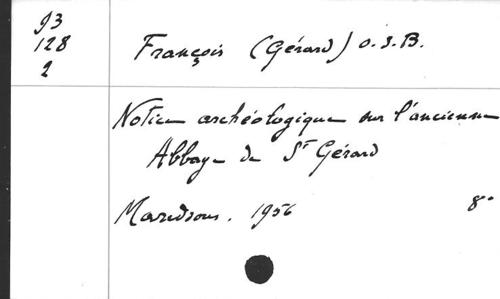 93
128
2
François (Gérard) O.S.B.
Notice archéologique sur l'ancienne
Abbaye de St Gérard
Maredsous. 1956 8°